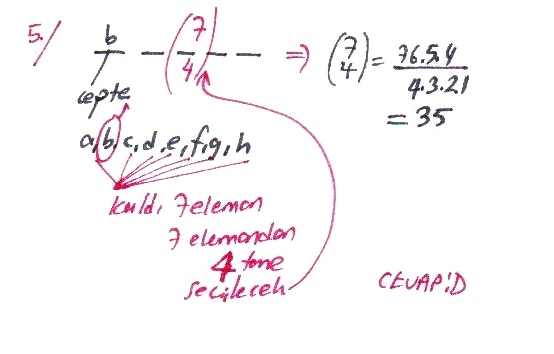 5./ b — (7 4) — — ⇒ (7 4) = 7.6.5.4 / 4.3.2.1
= 35
cepte
a, b, c, d, e, f, g, h
kaldı, 7 eleman
7 elemandan
4 tane
seçilecek
CEVAP: D